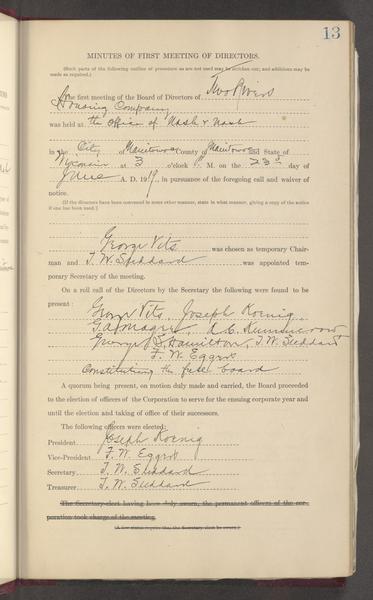 13
MINUTES OF FIRST MEETING OF DIRECTORS.
(Such parts of the following outline of procedure as are not used may be stricken out; and additions may be
made as required.)
The first meeting of the Board of Directors of Two Rivers
Housing Company
was held at the offices of Nash & Nash
in the City of Manitowoc County of Manitowoc and State of
Wisconsin at 3 o'clock P. M. on the 23d day of
June A. D. 1919, in pursuance of the foregoing call and waiver of
notice.
(If the directors have been convened in some other manner, state in what manner, giving a copy of the notice
if one has been used.)
George Vits was chosen as temporary Chair-
man and T. W. Suddard was appointed tem-
porary Secretary of the meeting.
On a roll call of the Directors by the Secretary the following were found to be
present:
George Vits, Joseph Koenig,
A. C.
George Hamilton, T. W. Suddard
F. W. Eggers
Constituting the full board
A quorum being present, on motion duly made and carried, the Board proceeded
to the election of officers of the Corporation to serve for the ensuing corporate year and
until the election and taking of office of their successors.
The following officers were elected:
President Joseph Koenig
Vice-President F. W. Eggers
Secretary T. W. Suddard
Treasurer T. W. Suddard
The Secretary-elect having been duly sworn, the permanent officers of the cor-
poration took charge of the meeting.
(A few states require that the Secretary-elect be sworn.)